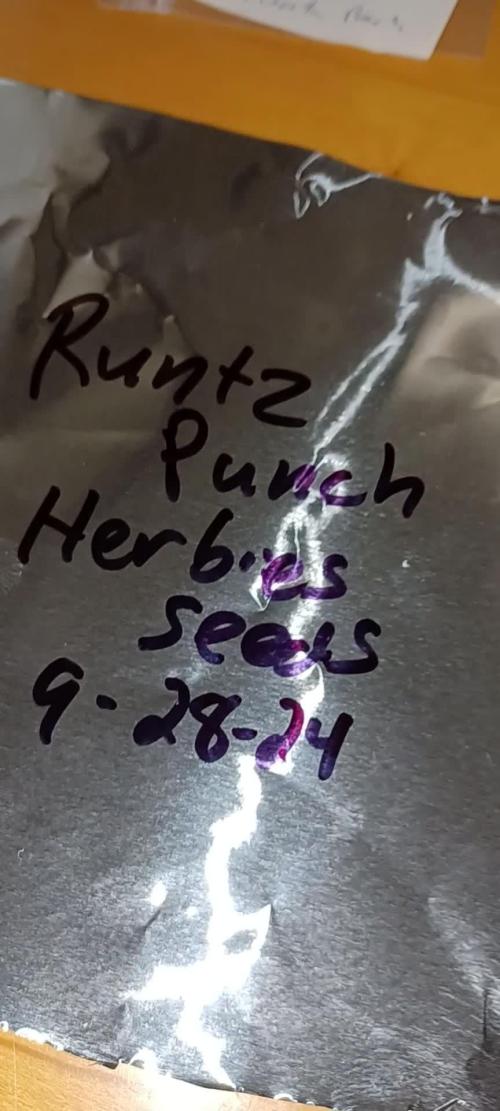 Runtz
Punch
Herbies
seeds
9-28-24